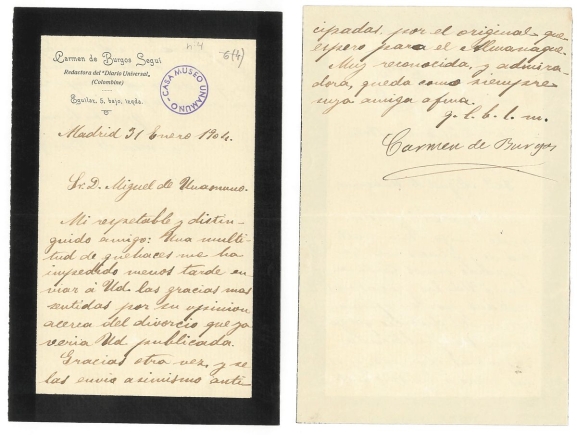 Carmen de Burgos Seguí
Redactora del "Diario Universal„
(Colombine)
Eguilaz, 5, bajo, izqda.
6(4)
CASA MUSEO UNAMUNO
Madrid 31 Enero 1904.
Sr. D. Miguel de Unamuno.
Mi respetable y distin-
guido amigo: Una multi-
tud de quehaces me ha
impedido menos tarde en-
viar á Ud. las gracias mas
sentidas por su opinion
acerca del divorcio que ya
veria Ud publicada.
Gracias otra vez, y se
las envio asimismo anti-
cipadas por el original que
espero para el Almanaque.
Muy reconocida, y admira-
dora, queda como siempre
suya amiga afma.
q. l. b. l. m.
Carmen de Burgos